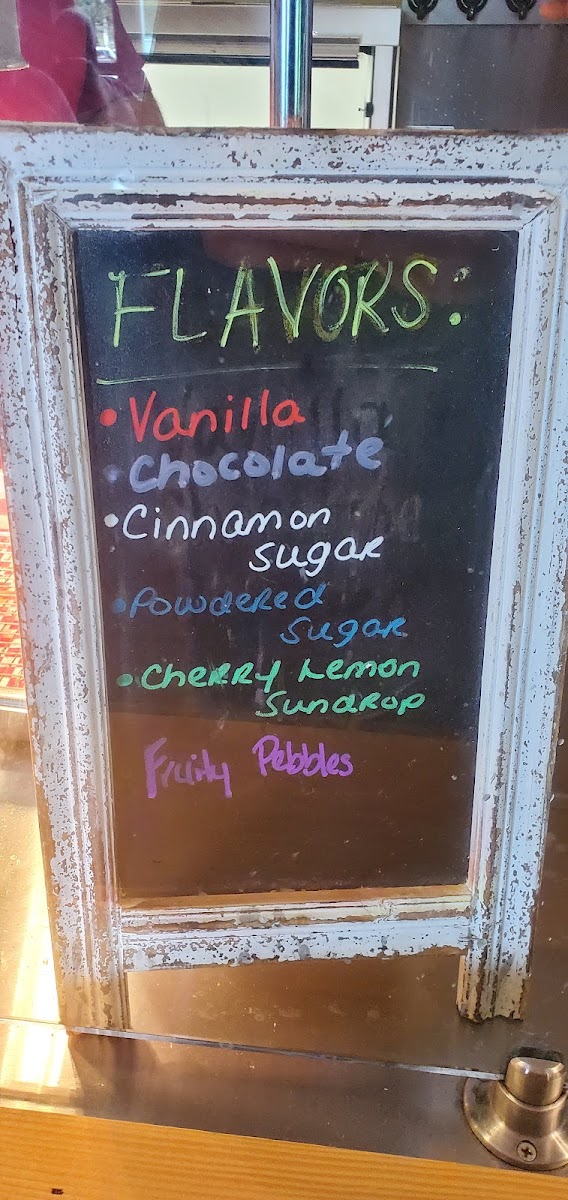 FLAVORS:
• Vanilla
• Chocolate
• Cinnamon
Sugar
• Powdered
Sugar
• Cherry Lemon
Sundrop
Fruity Pebbles